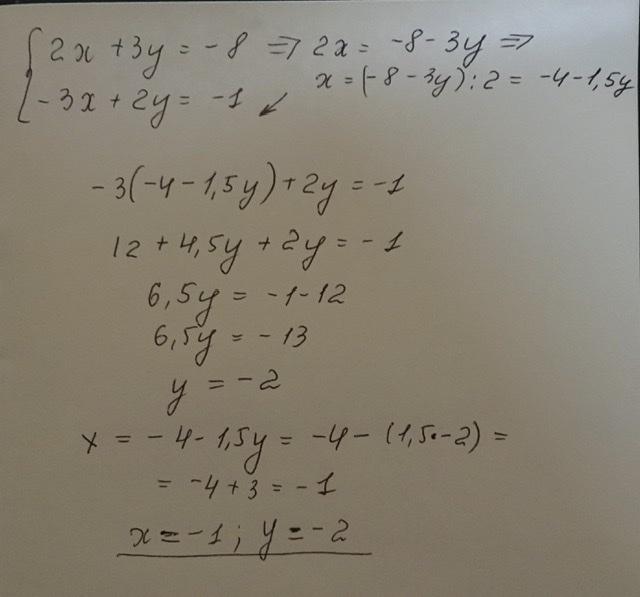 2x + 3y = -8 => 2x = -8 - 3y =>
x = (-8 - 3y) : 2 = -4 - 1,5y
-3x + 2y = -1
-3(-4 - 1,5y) + 2y = -1
12 + 4,5y + 2y = -1
6,5y = -1 - 12
6,5y = -13
y = -2
x = -4 - 1,5y = -4 - (1,5 · -2) =
= -4 + 3 = -1
x = -1 ; y = -2